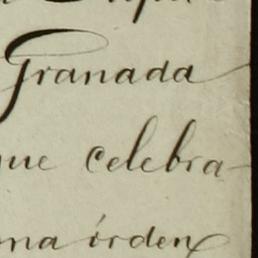 Granada
que celebra
ma órden